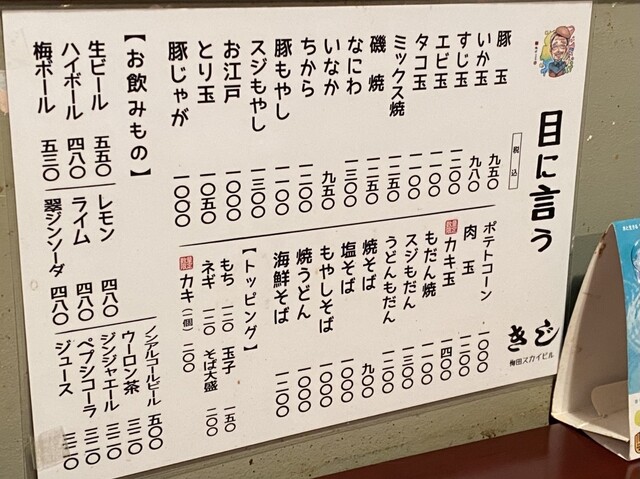 目に言う
税込
きじ
梅田スカイビル
豚玉 九五〇
いか玉 九八〇
すじ玉 一二〇〇
エビ玉 一一〇〇
タコ玉 一一〇〇
ミックス焼 一二五〇
磯焼 一二五〇
なにわ 一三〇〇
いなか 九五〇
ちから 一二〇〇
豚もやし 一一〇〇
スジもやし 一三〇〇
お江戸 一〇〇〇
とり玉 一〇五〇
豚じゃが 一〇〇〇
ポテトコーン 一〇〇〇
肉玉 一一〇〇
カキ玉 一四〇〇
もだん焼 一一〇〇
スジもだん 一三〇〇
うどんもだん 一二〇〇
焼そば 九〇〇
塩そば 一〇〇〇
もやしそば 一〇〇〇
焼うどん 一〇〇〇
海鮮そば 一二〇〇
【トッピング】
もち 一二〇 玉子 一五〇
ネギ 一二〇 そば大盛 二〇〇
カキ(一個) 二〇〇
【お飲みもの】
生ビール 五五〇
ハイボール 四八〇
梅ボール 五三〇
レモン 四八〇
ライム 四八〇
翠ジンソーダ 四八〇
ノンアルコールビール 五〇〇
ウーロン茶 三二〇
ジンジャエール 三二〇
ペプシコーラ 三二〇
ジュース 三二〇